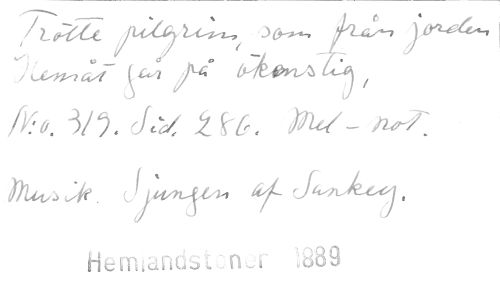 Trötte pilgrim, som från jorden
Hemåt går på ökenstig,
N:o. 319. Sid. 286. Mel-not.
Musik. Sjungen af Sankey.
Hemlandstoner 1889